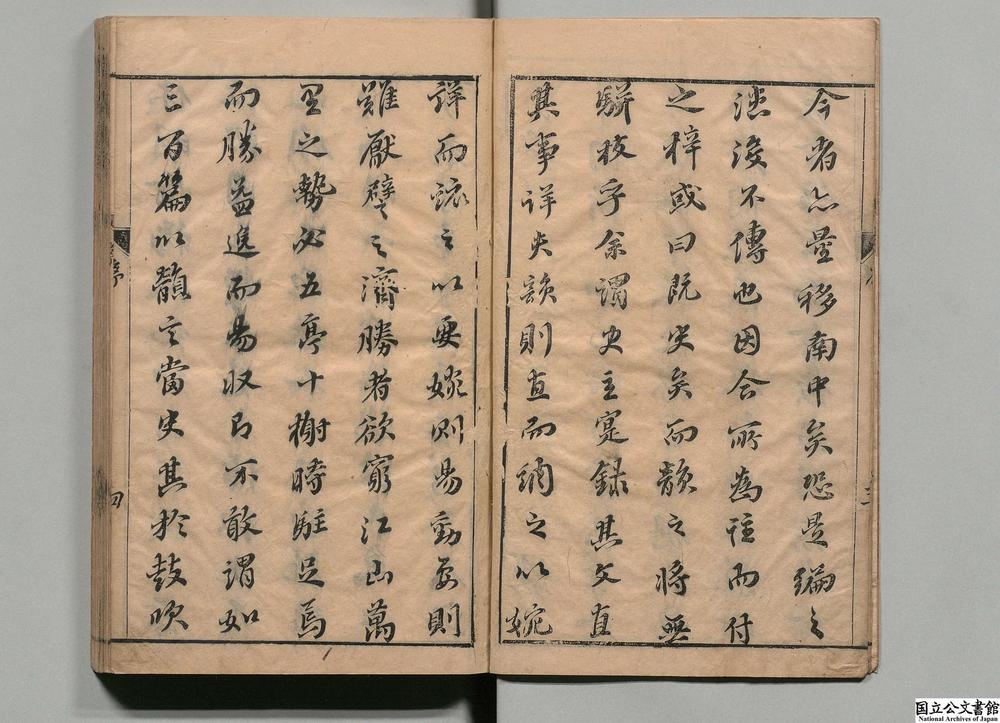 今者亦量移南中矣恐是編之
湮沒不傳也因合所為註而付
之梓或曰既史矣而韻之將無
駢枝乎余謂史主寔録其文直
其事詳史韻則直而綃之以婉
詳而誃之以要婉則易動要則
難厭譬之濟勝者欲窮江山萬
里之勢必五亭十榭時駐足焉
而勝益進而易収即不敢謂如
三百篇以韻言當史其於鼓吹
序
三
四
国立公文書館
National Archives of Japan